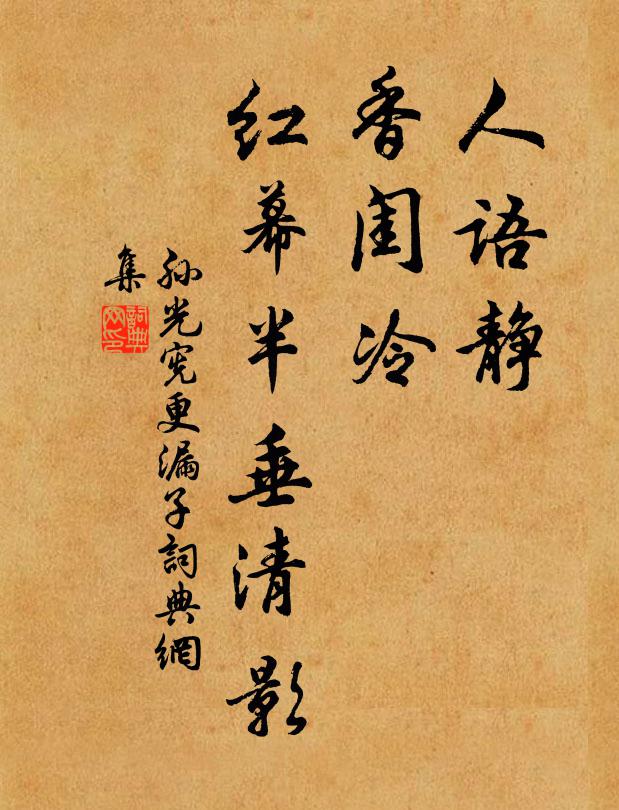 人语静
香闺冷
红幕半垂清影
孙光宪更漏子詞典網
集
詞典网印